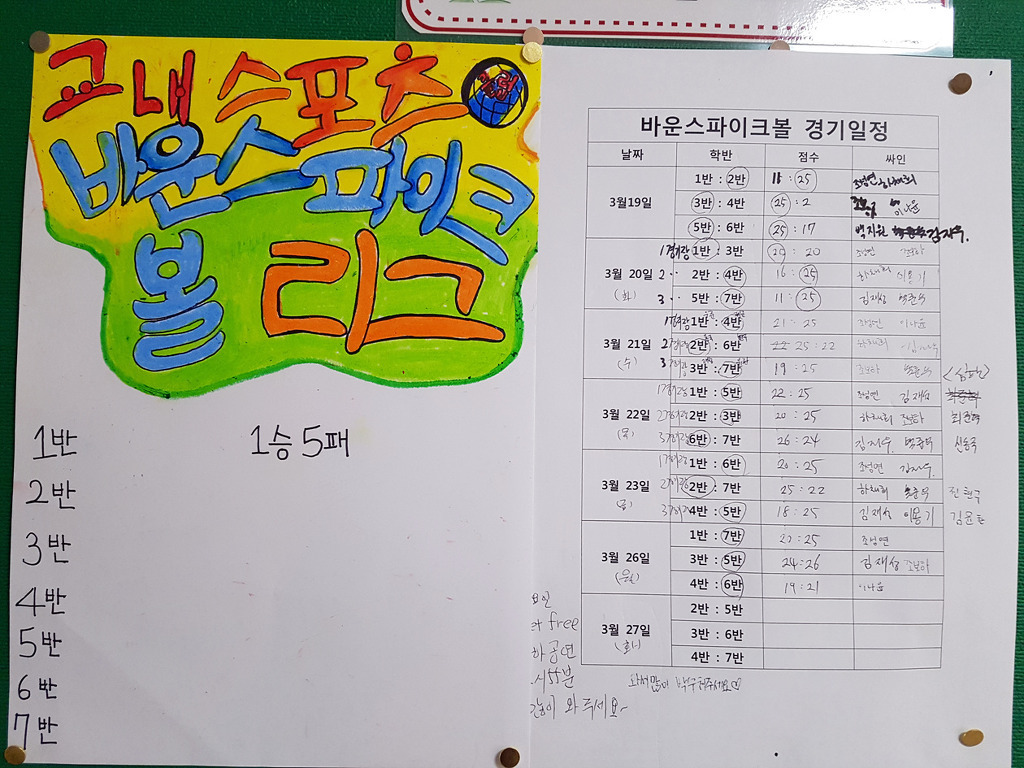 교내 스포츠
바운스파이크
볼 리그
1반 1승 5패
2반
3반
4반
5반
6반
7반
바운스파이크볼 경기일정
날짜 학반 점수 싸인
3월19일
1반 : 2반 11 : 25
3반 : 4반 25 : 2 이나윤
5반 : 6반 25 : 17 백지원 김지우.
3월 20일
(화)
1경기 1반 : 3반 25 : 20
2 ·· 2반 : 4반 16 : 25 하채희 이용기
3 ·· 5반 : 7반 11 : 25 김재성
3월 21일
(수)
1경기 1반 : 4반 21 : 25 조성연 이나윤
2경기 2반 : 6반 25 : 22 하채희
3 3반 : 7반 19 : 25
<심판>
3월 22일
(목)
1경기 1반 : 5반 22 : 25 조성연 김재성
2경기 2반 : 3반 20 : 25 하채희
3경기 6반 : 7반 26 : 24 김지우
3월 23일
(금)
1경기 1반 : 6반 20 : 25 조성연 김지우
2경기 2반 : 7반 25 : 22 하채희
3경기 4반 : 5반 18 : 25 김재성 이용기
3월 26일
(월)
1반 : 7반 : 25 조성연
3반 : 5반 24 : 26 김재성
4반 : 6반 19 : 21 이나윤
3월 27일
(화)
2반 : 5반
3반 : 6반
4반 : 7반
free
공연
시 55분
같이 와 주세요~
와서 많이 박수쳐주세요♡